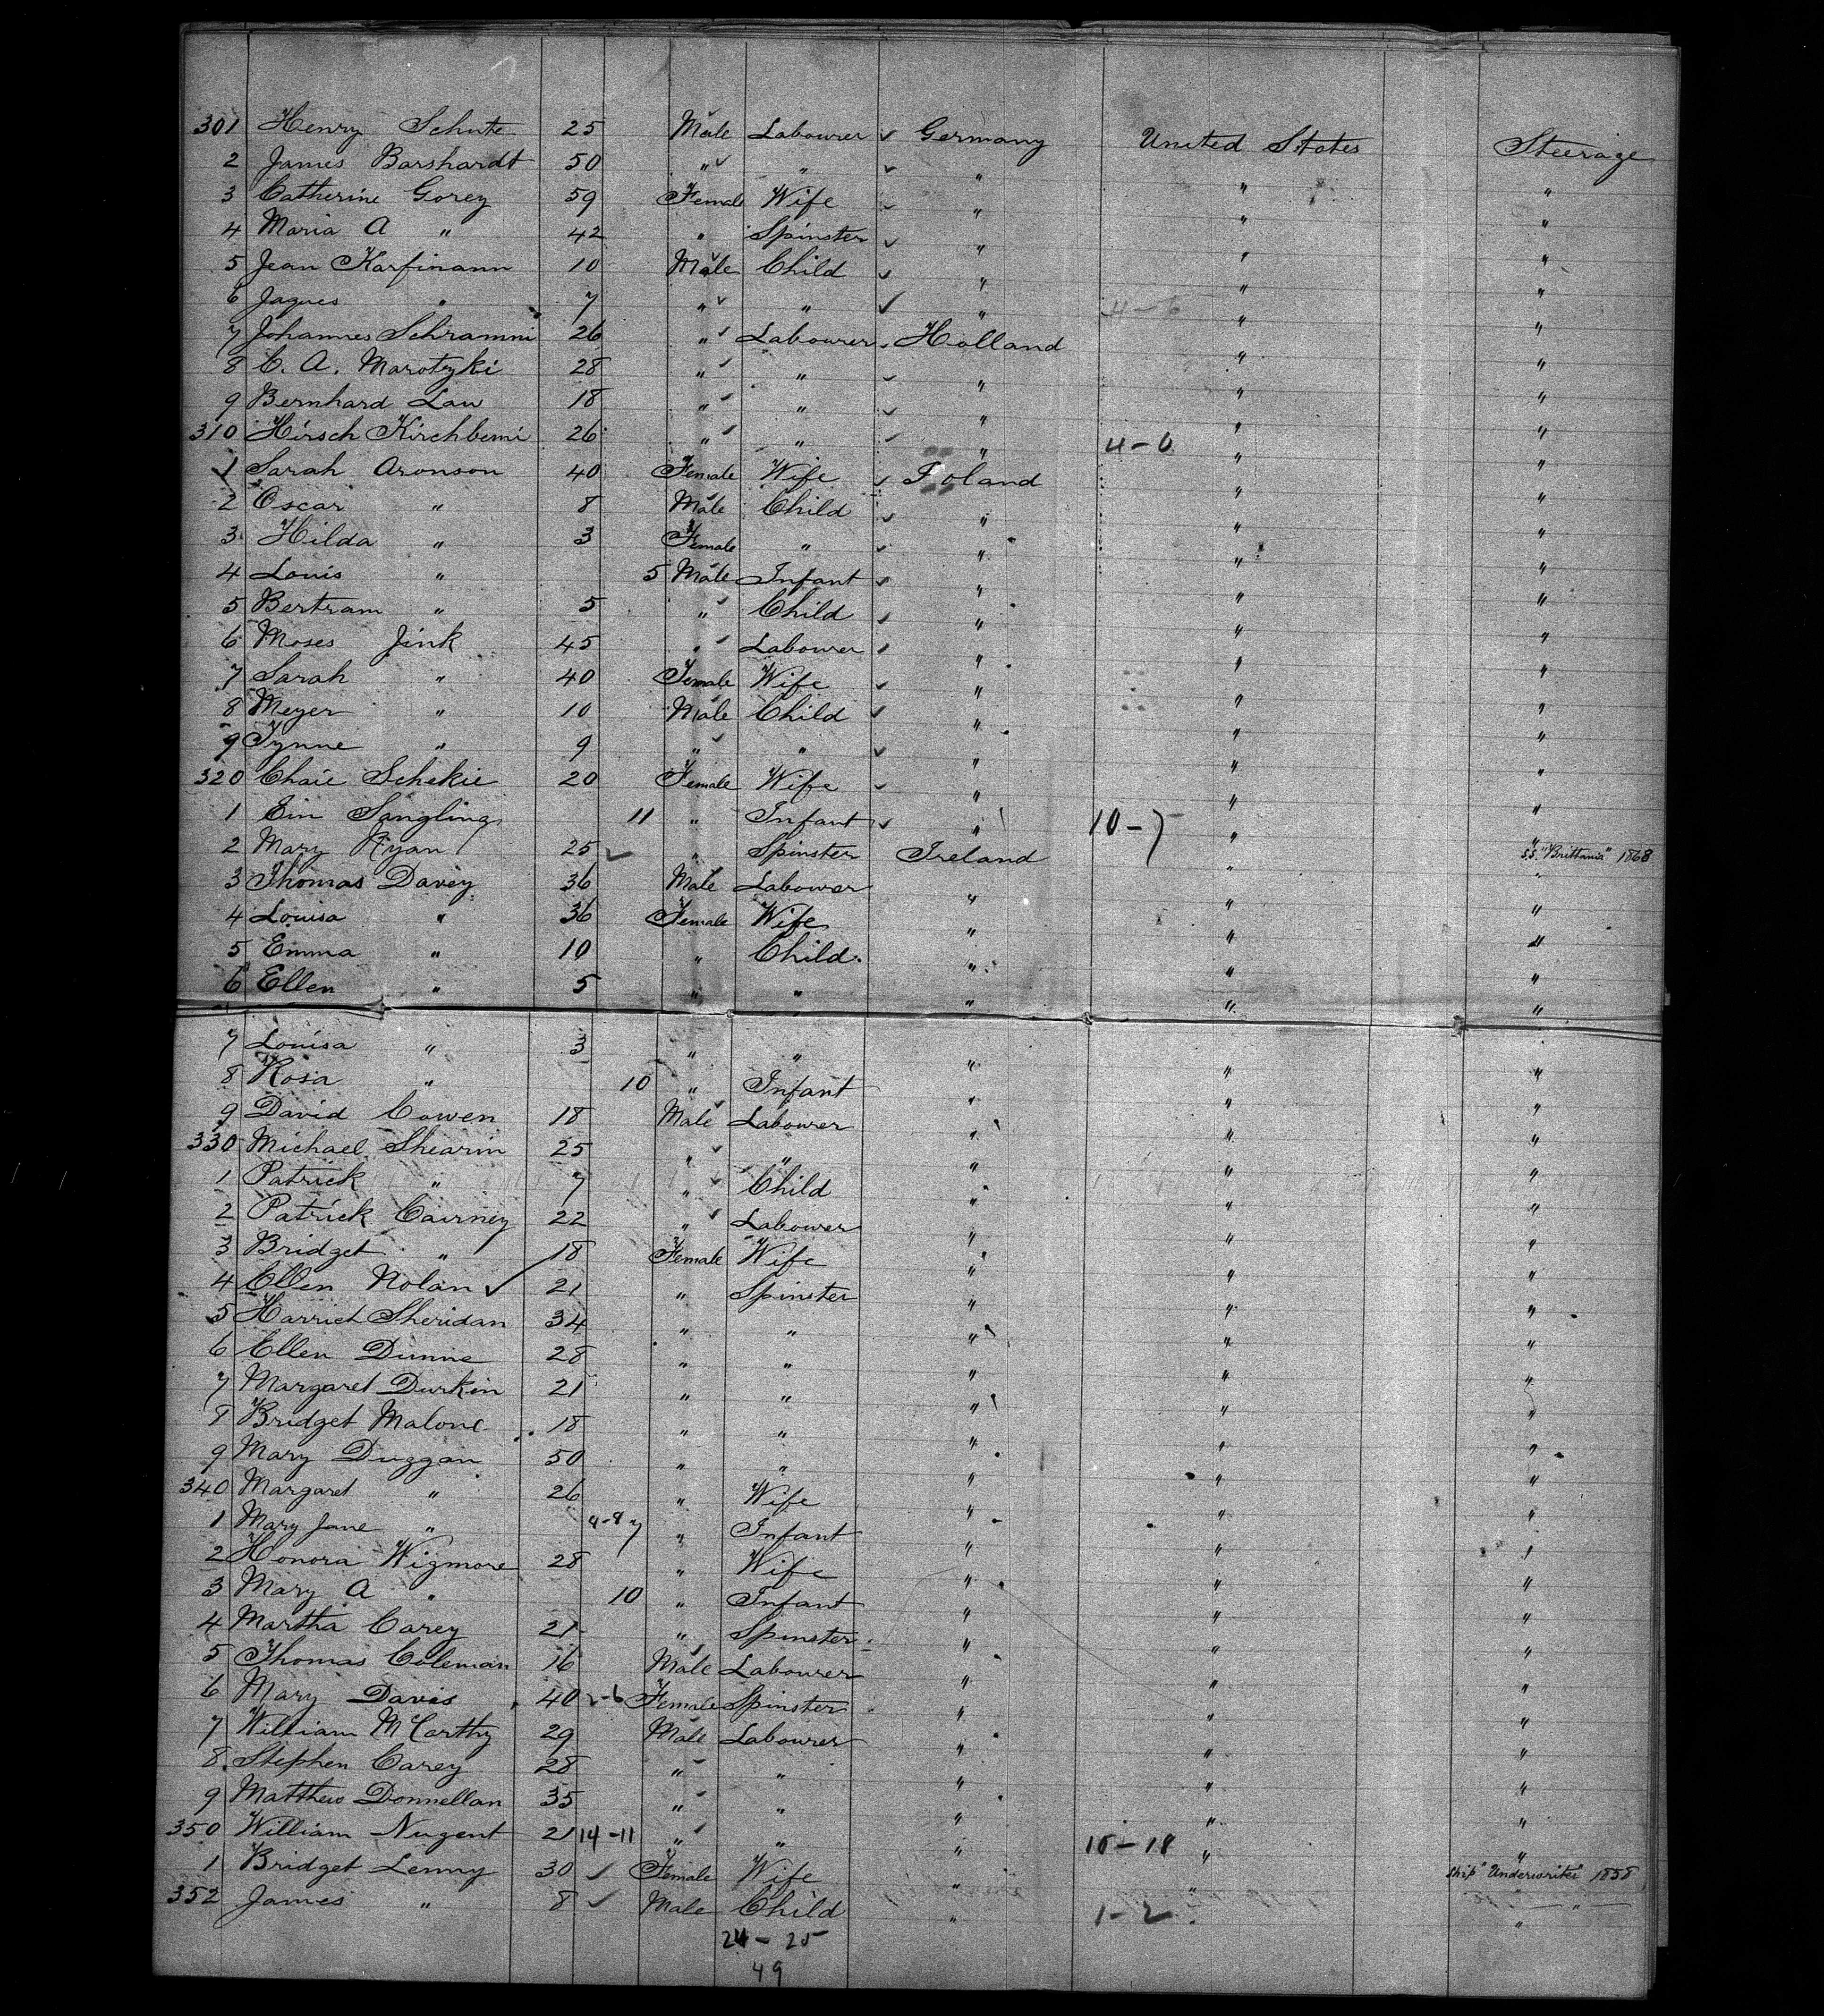 301 Henry Schute 25 Male Labourer Germany United States Steerage
2 James Barshardt 50 " " " " "
3 Catherine Gorey 59 Female Wife " " "
4 Maria A " 42 " Spinster " " "
5 Jean Karfinann 10 Male Child " " "
6 Jaques " 7 " " " 4-6 " "
7 Johannes Schramm 26 " Labourer Holland " "
8 C. A. Marotzki 28 " " " " "
9 Bernhard Lau 18 " " " " "
310 Hirsch 26 " " " 4-6 " "
1 Sarah Aronson 40 Female Wife Poland " "
2 Oscar " 8 Male Child " " "
3 Hilda " 3 Female " " " "
4 Louis " 5 Male Infant " " "
5 Bertram " 5 " Child " " "
6 Moses Jink 45 " Labourer " " "
7 Sarah " 40 Female Wife " " "
8 Meyer " 10 Male Child " " "
9 Tynne " 9 " " " " "
320 Chaie Schekie 20 Female Wife " " "
1 Ein Sangling 11 " Infant " 10-7 " "
2 Mary Ryan 25 " Spinster Ireland " S.S. "Brittania" 1868
3 Thomas Davey 36 Male Labourer " " "
4 Louisa " 36 Female Wife " " "
5 Emma " 10 " Child " " "
6 Ellen " 5 " " " " "
7 Louisa " 3 " " " " "
8 Rosa " 10 " Infant " " "
9 David Cowen 18 Male Labourer " " "
330 Michael Shearin 25 " " " " "
1 Patrick " 7 " Child " " "
2 Patrick Cairney 22 " Labourer " " "
3 Bridget " 18 Female Wife " " "
4 Ellen Nolan 21 " Spinster " " "
5 Harriet Sheridan 34 " " " " "
6 Ellen Dunne 28 " " " " "
7 Margaret Durkin 21 " " " " "
8 Bridget Malone 18 " " " " "
9 Mary Duggan 50 " " " " "
340 Margaret " 26 " Wife " " "
1 Mary Jane " 4-8 7 " Infant " " "
2 Honora Wigmore 28 " Wife " " "
3 Mary A " 10 " Infant " " "
4 Martha Carey 21 " Spinster " " "
5 Thomas Coleman 16 Male Labourer " " "
6 Mary Davis 40 2-6 Female Spinster " " "
7 William McCarthy 29 Male Labourer " " "
8 Stephen Carey 28 " " " " "
9 Matthew Donnellan 35 " " " " "
350 William Nugent 21 14-11 " " " 15-18 " "
1 Bridget Lenny 30 Female Wife " " Ship "Underwriter" 1858
352 James " 8 Male Child " 1-2 " "
24-25
49